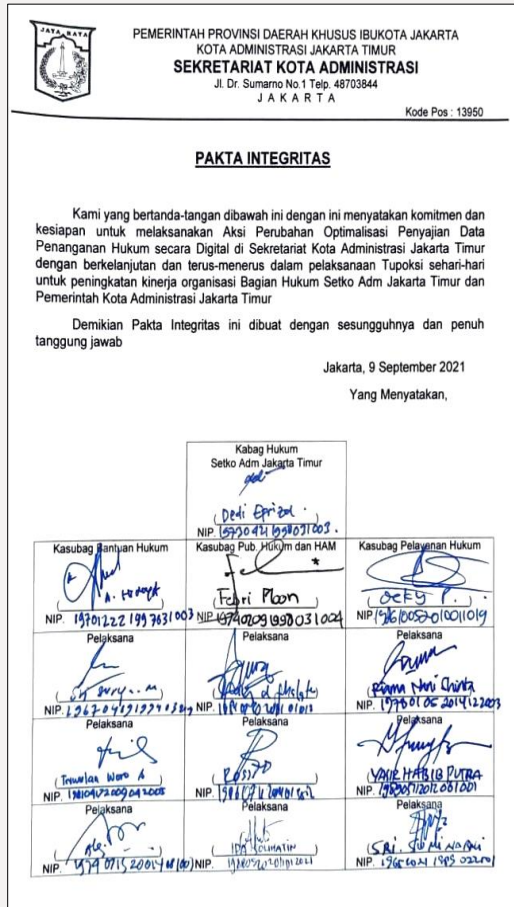 JAYA RAYA
PEMERINTAH PROVINSI DAERAH KHUSUS IBUKOTA JAKARTA
KOTA ADMINISTRASI JAKARTA TIMUR
SEKRETARIAT KOTA ADMINISTRASI
Jl. Dr. Sumarno No.1 Telp. 48703844
J A K A R T A
Kode Pos : 13950
PAKTA INTEGRITAS
Kami yang bertanda-tangan dibawah ini dengan ini menyatakan komitmen dan
kesiapan untuk melaksanakan Aksi Perubahan Optimalisasi Penyajian Data
Penanganan Hukum secara Digital di Sekretariat Kota Administrasi Jakarta Timur
dengan berkelanjutan dan terus-menerus dalam pelaksanaan Tupoksi sehari-hari
untuk peningkatan kinerja organisasi Bagian Hukum Setko Adm Jakarta Timur dan
Pemerintah Kota Administrasi Jakarta Timur
Demikian Pakta Integritas ini dibuat dengan sesungguhnya dan penuh
tanggung jawab
Jakarta, 9 September 2021
Yang Menyatakan,
Kabag Hukum
Setko Adm Jakarta Timur
(Dedi Eprizal.)
NIP.
Kasubag Bantuan Hukum Kasubag Pub. Hukum dan HAM Kasubag Pelayanan Hukum
(A. ) (Febri ) ( P.)
NIP. 197012221997031003 NIP 197402091998031004 NIP
Pelaksana Pelaksana Pelaksana
NIP. NIP. NIP.
Pelaksana Pelaksana Pelaksana
(YASIR HABIB PUTRA
NIP. NIP. NIP.
Pelaksana Pelaksana Pelaksana
(IDA SOLIHATIN (SRI.
NIP. NIP. NIP.